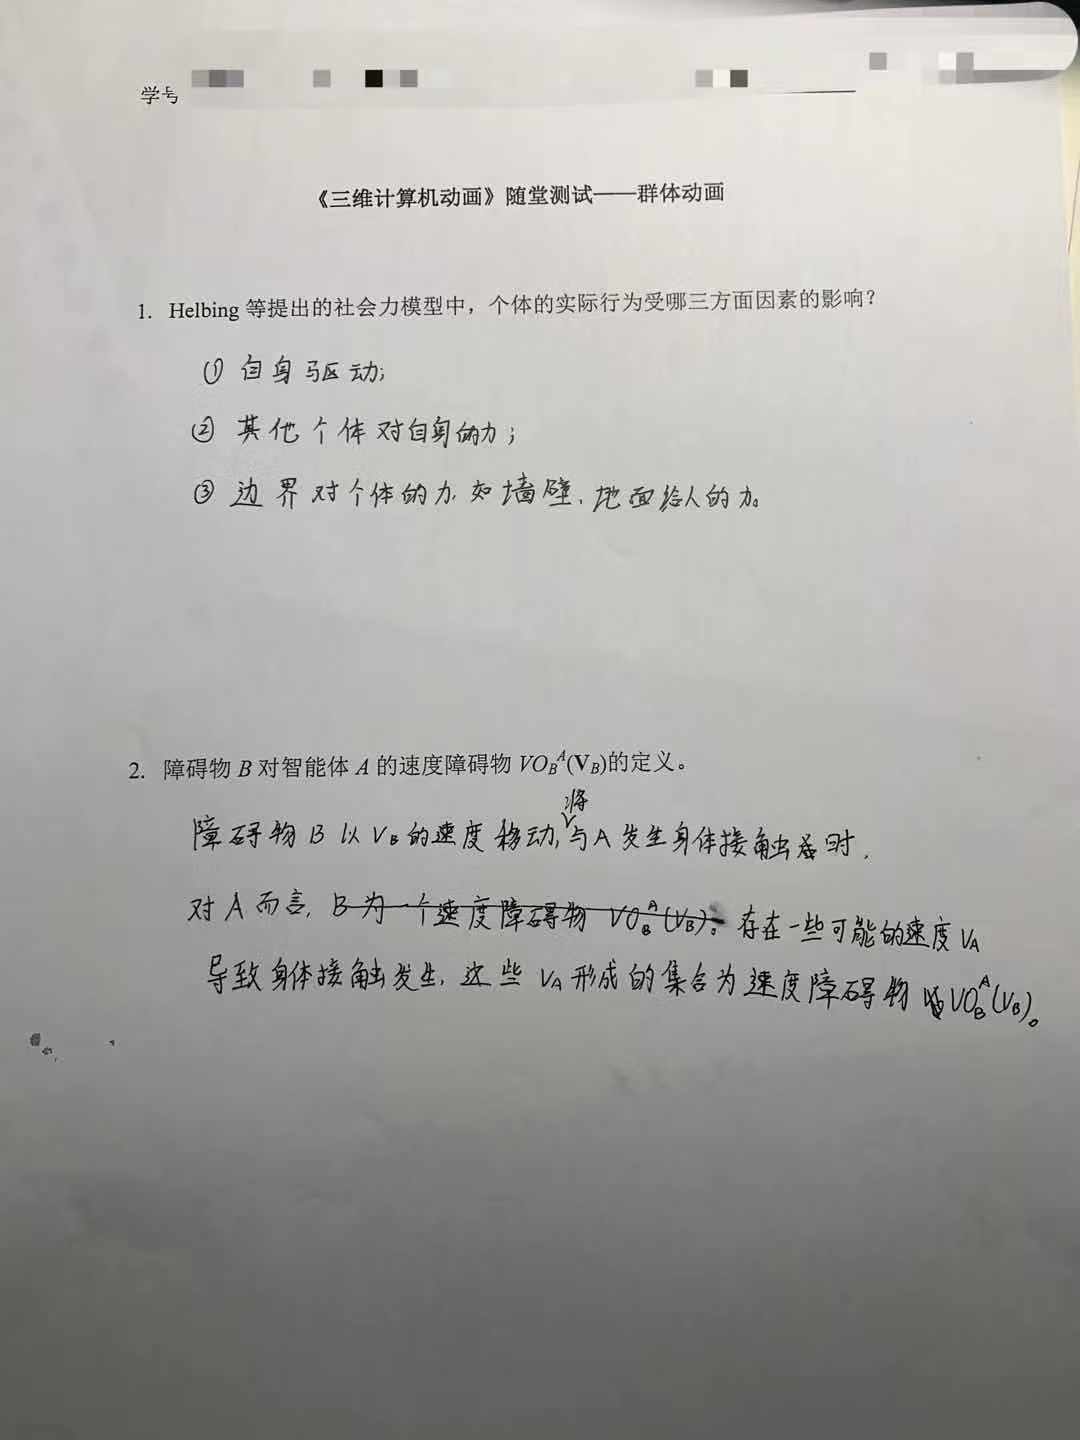 学号
《三维计算机动画》随堂测试——群体动画
1. Helbing 等提出的社会力模型中，个体的实际行为受哪三方面因素的影响？
① 自身驱动；
② 其他个体对自身的力；
③ 边界对个体的力.如墙壁、地面给人的力。
2. 障碍物 B 对智能体 A 的速度障碍物 VO_B^A(V_B)的定义。
将
障碍物 B 以 V_B 的速度移动,与 A 发生身体接触时,
对 A 而言, B为一个速度障碍物 VO_B^A(V_B)。存在一些可能的速度 V_A
导致身体接触发生, 这些 V_A 形成的集合为速度障碍物 VO_B^A(V_B)。